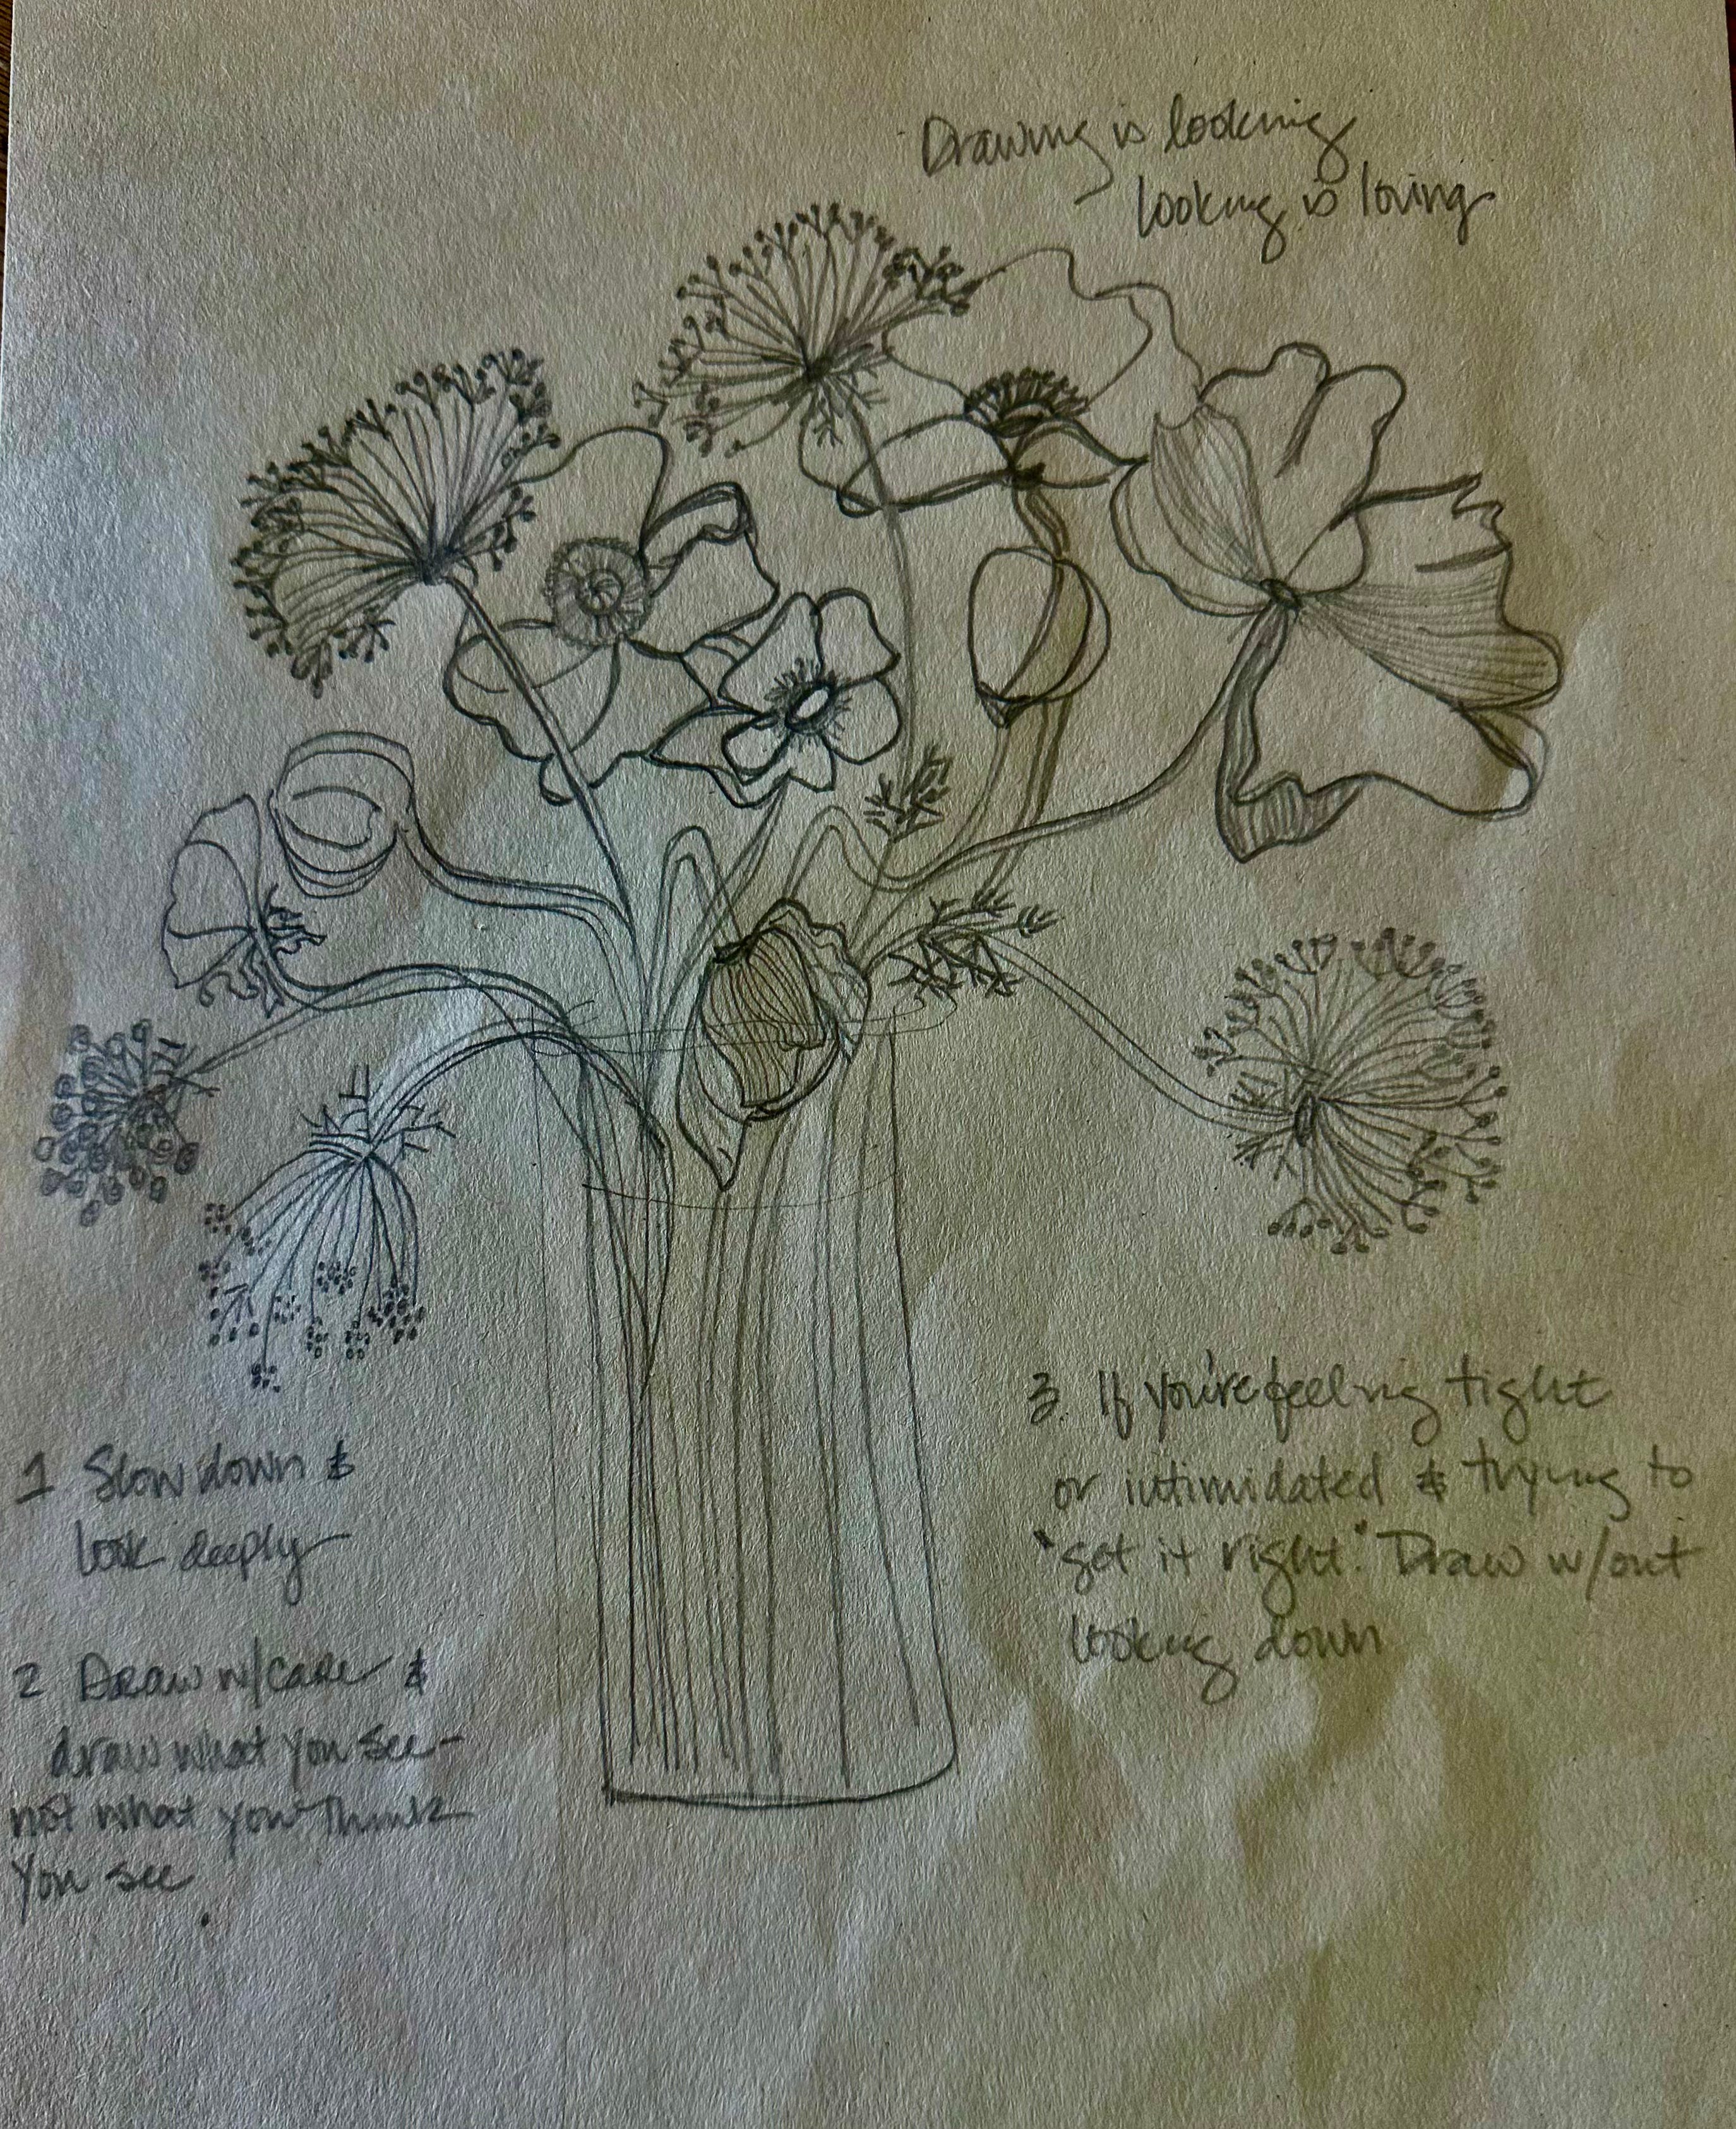 Drawing is looking
looking is loving
1 Slow down &
look deeply
2 Draw w/care &
draw what you see -
not what you think
you see
3. If you're feeling tight
or intimidated & trying to
"get it right". Draw w/out
looking down